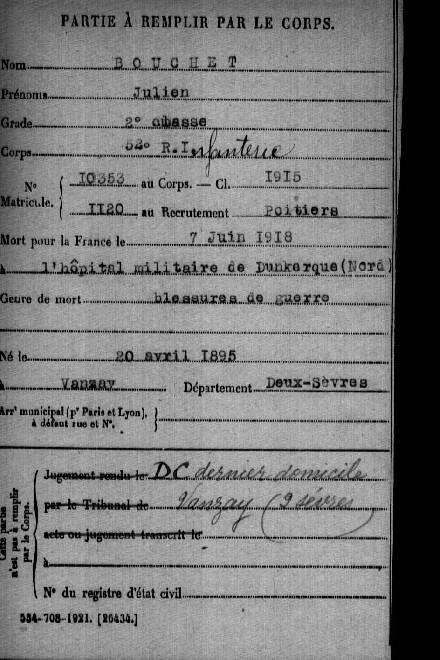 PARTIE À REMPLIR PAR LE CORPS.
Nom BOUCHET
Prénoms Julien
Grade 2° classe
Corps 52° R.Infanterie
N° Matricule. { 10353 au Corps. — Cl. 1915
1120 au Recrutement Poitiers
Mort pour la France le 7 Juin 1918
à l'hôpital militaire de Dunkerque(Nord)
Genre de mort blessures de guerre
Né le 20 avril 1895
à Vanzay Département Deux-Sèvres
Arr' municipal (p' Paris et Lyon), à défaut rue et N°. }
Cette partie n'est pas à remplir par le Corps.
Jugement rendu le DC dernier domicile
par le Tribunal de Vanzay (2 sèvres)
acte ou jugement transcrit le
à
N° du registre d'état civil
534-708-1921. [26434.]